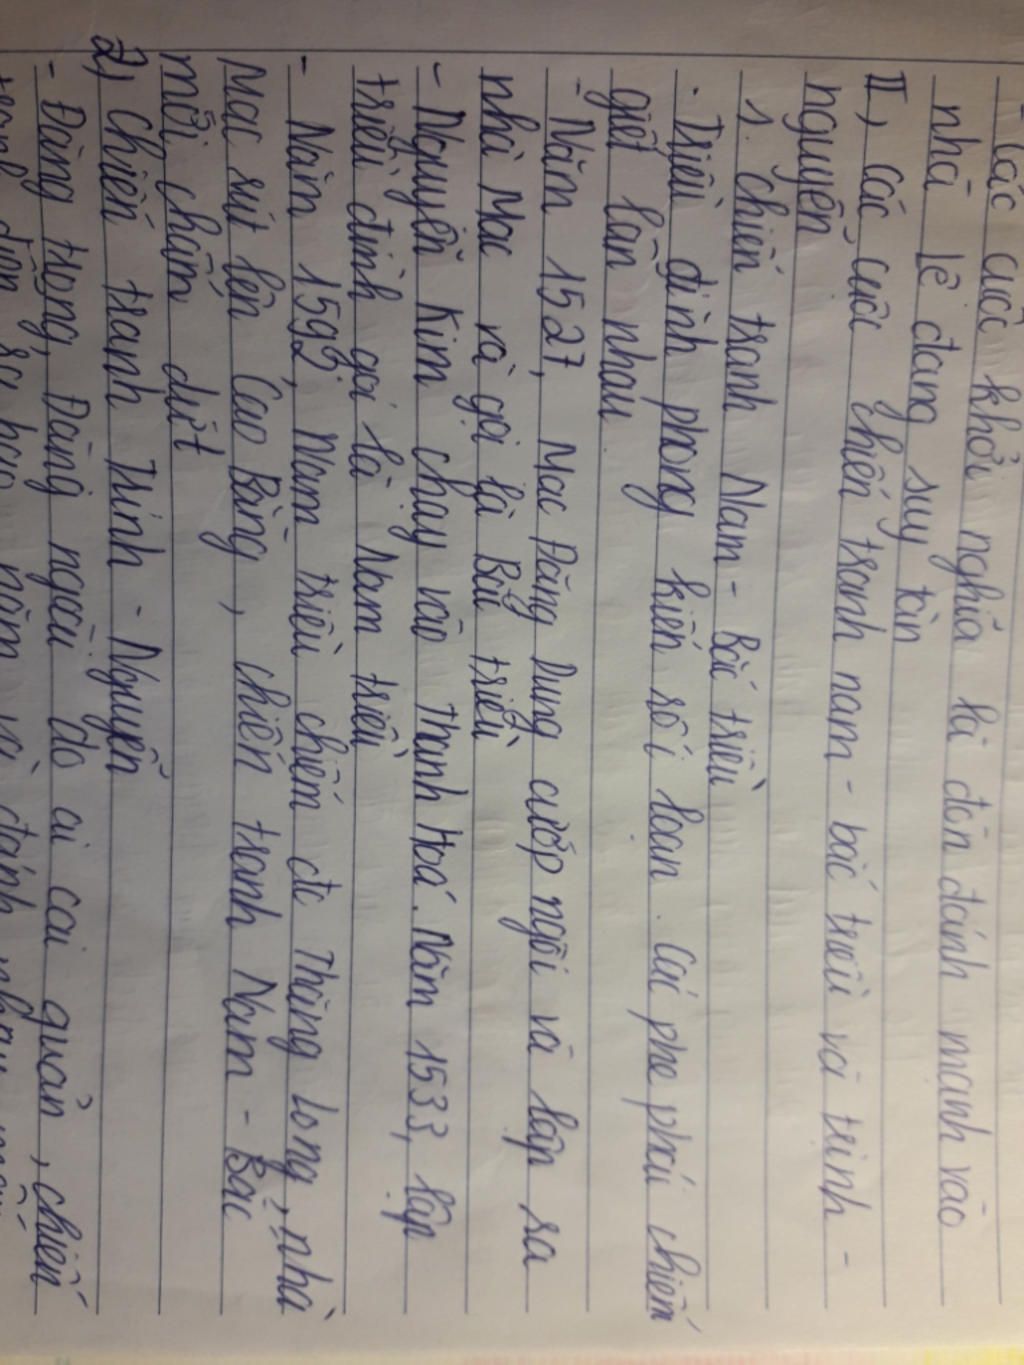 - Các cuộc khởi nghĩa là đòn đánh mạnh vào
nhà lê đang suy tàn
II, Các cuộc chiến tranh nam - bắc triều và trịnh -
nguyễn
1. Chiến tranh Nam - Bắc triều
- Triều đình phong kiến rối loạn. Các phe phái chiến
giết lẫn nhau
- Năm 1527, Mạc Đăng Dung cướp ngôi và lập ra
nhà Mạc và gọi là Bắc triều
- Nguyễn Kim chạy vào Thanh Hoá. Năm 1533, lập
triều đình gọi là Nam triều
- Năm 1592, Nam triều chiếm đc Thăng long, nhà
Mạc rút lên Cao Bằng, chiến tranh Nam - Bắc
mới chấm dứt
2, Chiến tranh Trịnh - Nguyễn
- Đàng trong, Đàng ngoài do ai cai quản, chiến